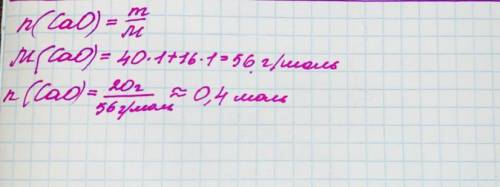 n(CaO) = m/M
M(CaO) = 40·1+16·1 = 56 г/моль
n(CaO) = 20г/56 г/моль ≈ 0,4 моль